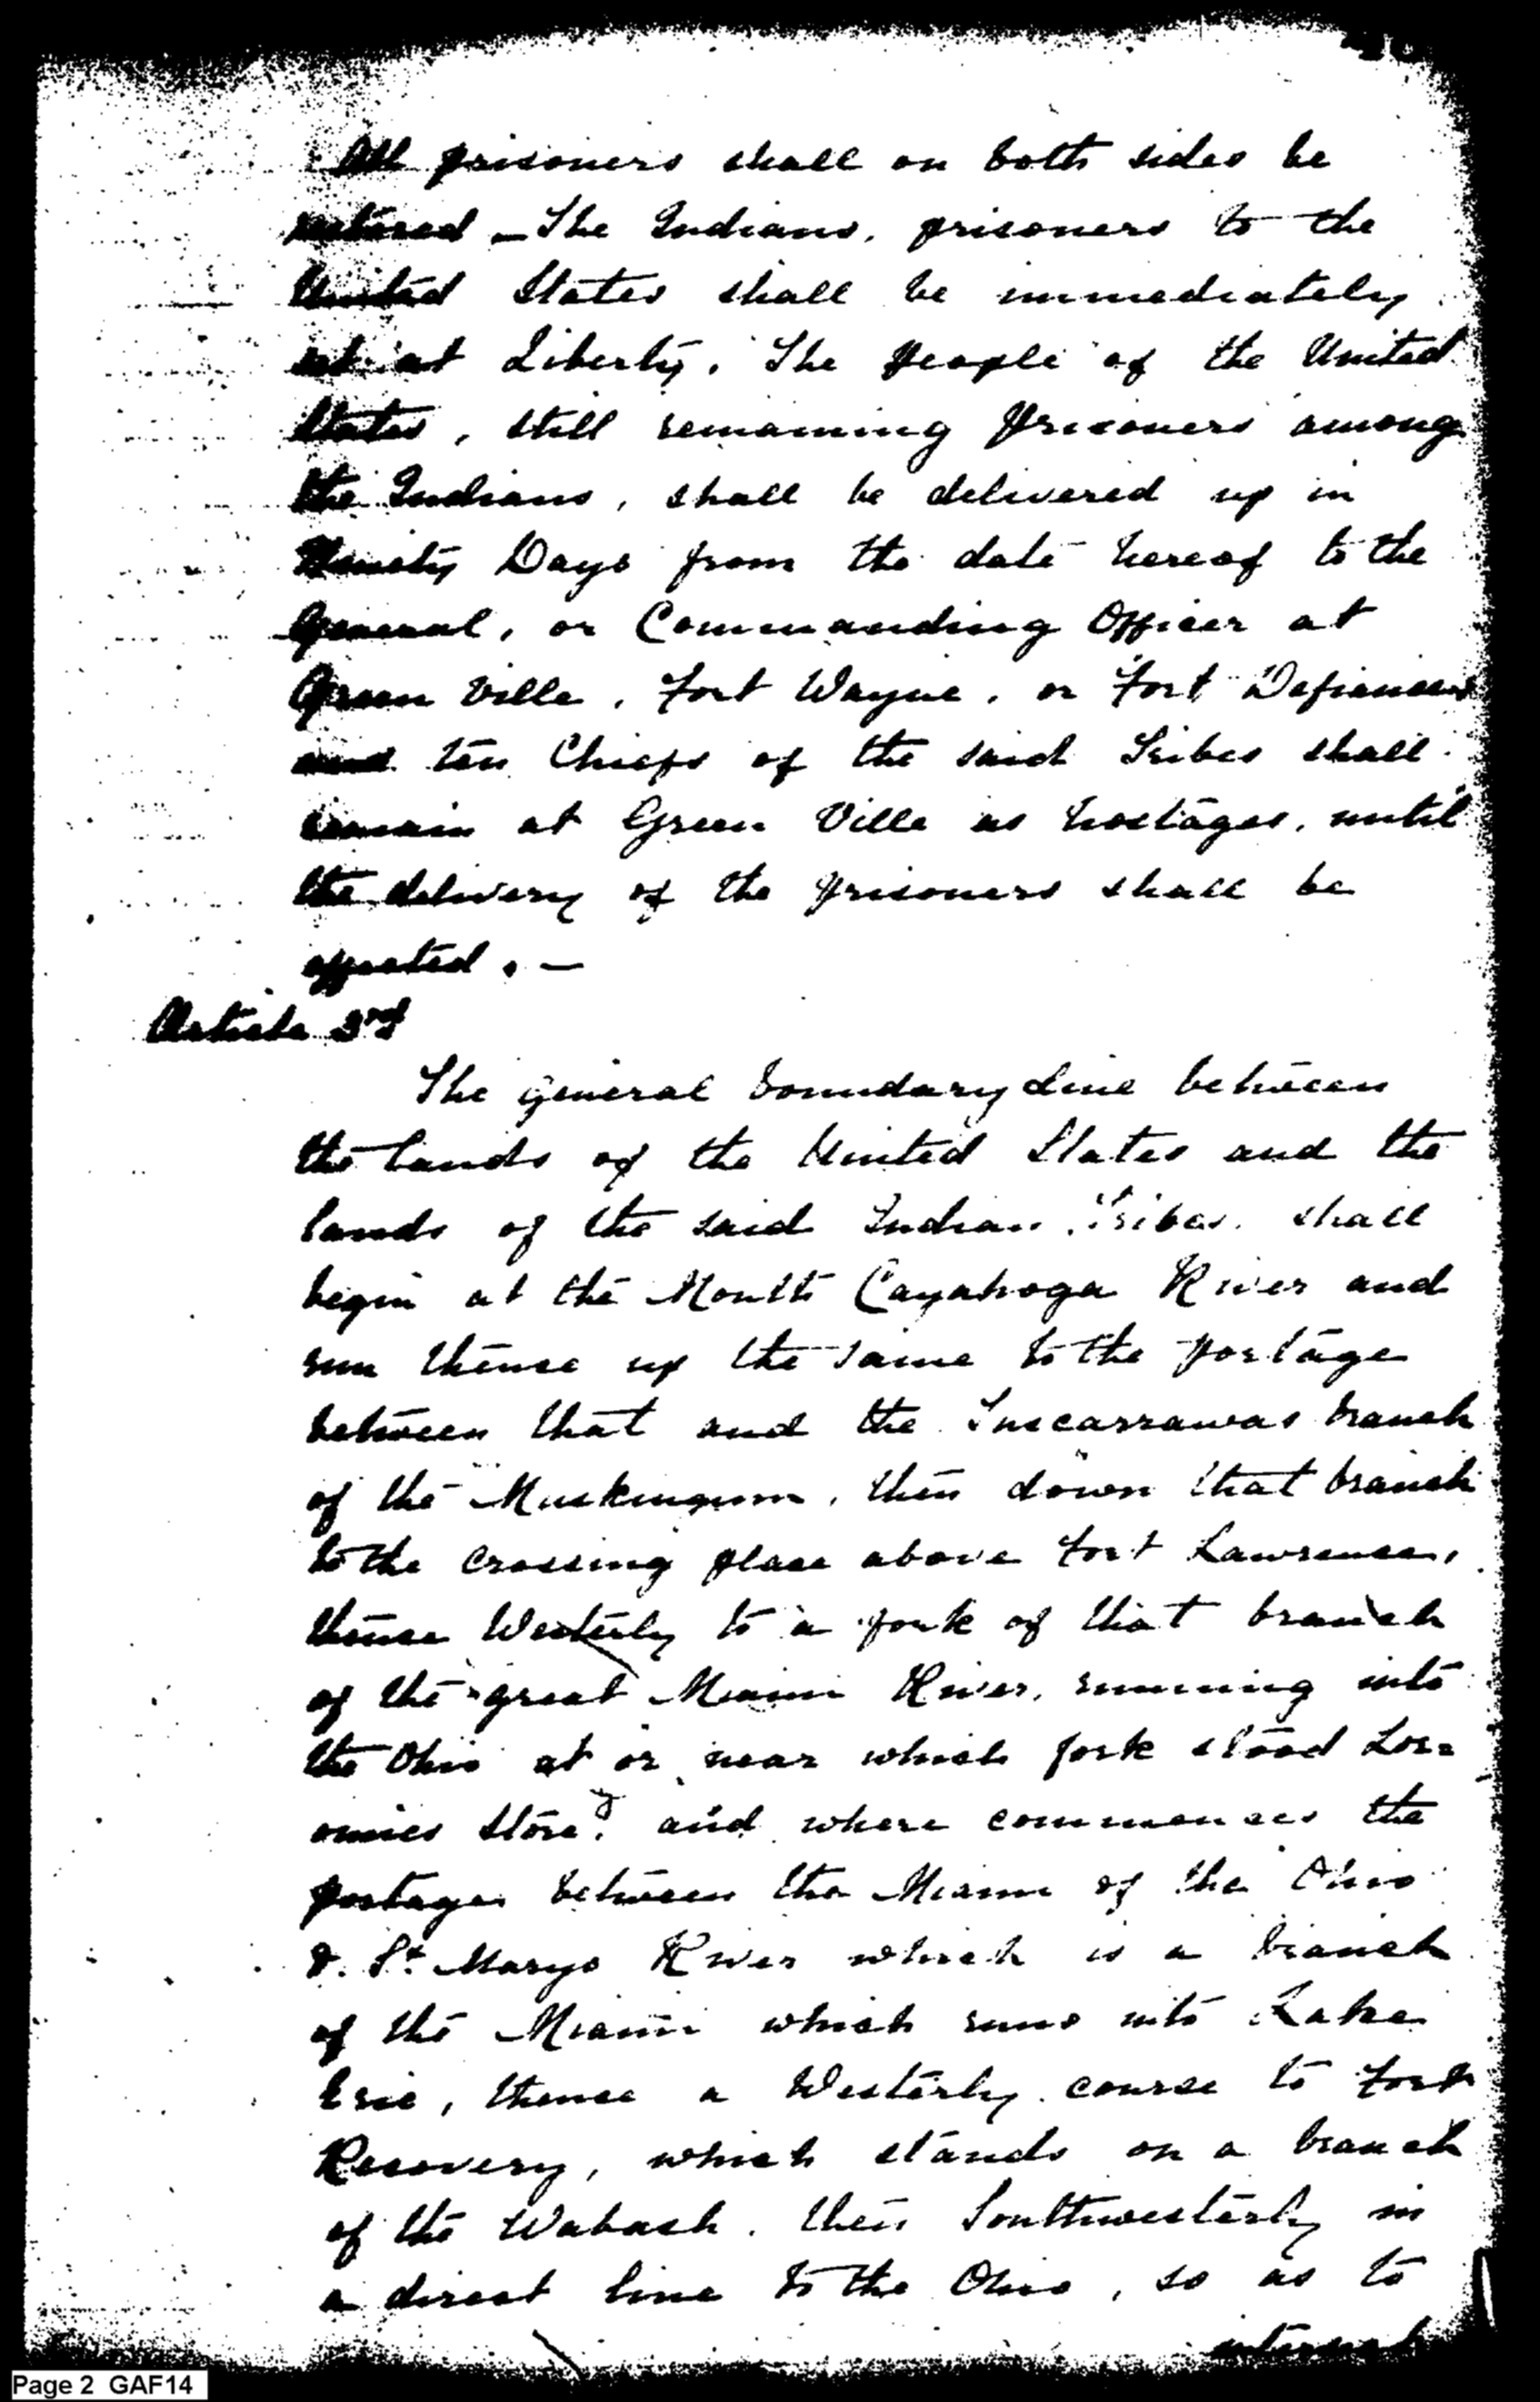 All prisoners shall on both sides be
restored _ The Indians, prisoners to the
United States shall be immediately
set at Liberty. The People of the United
States, still remaining Prisoners among
the Indians, shall be delivered up in
Ninety Days from the date hereof to the
General, or Commanding Officer at
Green Ville, Fort Wayne, or Fort Defiance,
and ten Chiefs of the said Tribes shall
remain at Green Ville as hostages, until
the delivery of the prisoners shall be
effected. —
Article 3rd
The General boundary Line between
the lands of the United States and the
lands of the said Indian Tribes shall
begin at the Mouth Cayahoga River and
run thence up the same to the portage
between that and the Tuscarrawas branch
of the Muskingum, then down that branch
to the crossing place above Fort Lawrence,
thence Westerly to a fork of that branch
of the great Miami River, running into
the Ohio at or near which fork stood Lor=
omies Store, and where commences the
portage between the Miami of the Ohio
& St. Marys River which is a branch
of the Miami which runs into Lake
Erie, thence a Westerly course to Fort
Recovery, which stands on a branch
of the Wabash, then Southwesterly in
a direct line to the Ohio, so as to
intersect
Page 2 GAF14